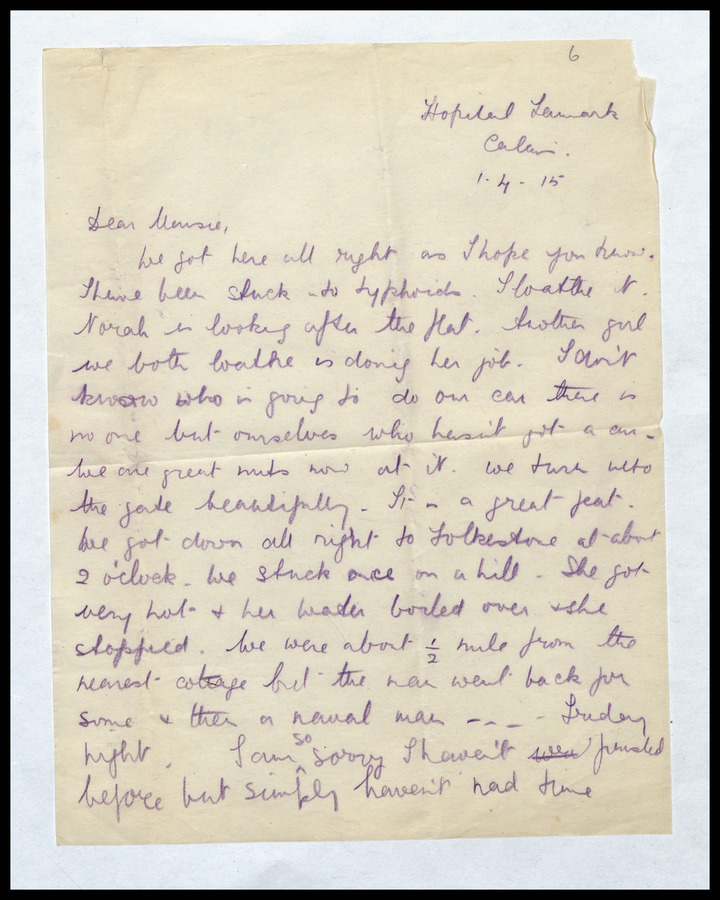 6
Hopital Lamark
Calais.
1-4-15
Dear Mumsie,
We got here all right as I hope you know.
I have been stuck to typhoids. I loathe it.
Norah is looking after the flat. Another girl
we both loathe is doing her job. I don't
know who is going to do our car there is
no one but ourselves who hasn't got a car.
We are great nuts now at it. We turn into
the gate beautifully. It is a great feat.
We got down all right to Folkestone at about
2 o'clock. We stuck once on a hill. She got
very hot & her water boiled over & she
stopped. We were about ½ mile from the
nearest cottage but the man went back for
some & then a naval man - - - - Friday
night. I am so sorry I haven't finished
before but simply haven't had time